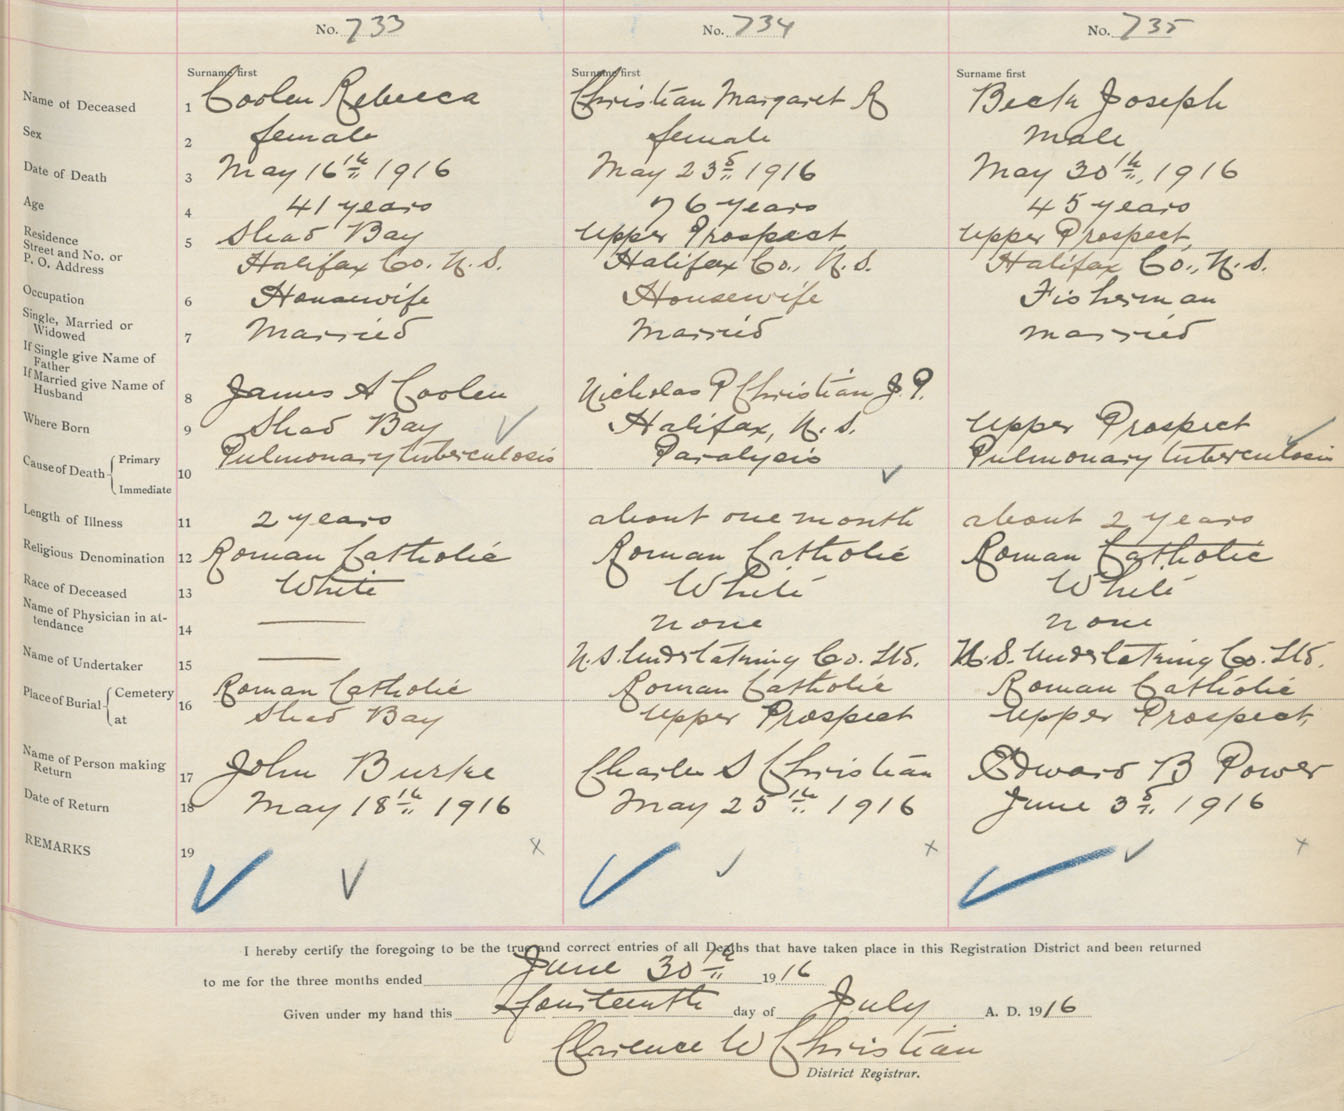 No. 733 No. 734 No. 735
Surname first Surname first Surname first
Name of Deceased 1 Coolen Rebecca Christian Margaret R Beck Joseph
Sex 2 female female male
Date of Death 3 May 16th 1916 May 23rd 1916 May 30th, 1916
Age 4 41 years 76 years 45 years
Residence Street and No. or P. O. Address 5 Shad Bay Upper Prospect Upper Prospect,
Halifax Co. N. S. Halifax Co., N. S. Halifax Co., N. S.
Occupation 6 Housewife Housewife Fisherman
Single, Married or Widowed 7 Married Married married
If Single give Name of Father
If Married give Name of Husband 8 James A Coolen Nicholas P Christian J. P.
Where Born 9 Shad Bay Halifax, N. S. Upper Prospect
Cause of Death Primary Immediate 10 Pulmonary tuberculosis Paralysis Pulmonary tuberculosis
Length of Illness 11 2 years about one month about 2 years
Religious Denomination 12 Roman Catholic Roman Catholic Roman Catholic
Race of Deceased 13 White White White
Name of Physician in attendance 14 — none none
Name of Undertaker 15 — N. S. Undertaking Co. Ltd. N. S. Undertaking Co. Ltd.
Place of Burial Cemetery at 16 Roman Catholic Roman Catholic Roman Catholic
Shad Bay Upper Prospect Upper Prospect,
Name of Person making Return 17 John Burke Charles S Christian Edward B Power
Date of Return 18 May 18th 1916 May 25th 1916 June 3rd, 1916
REMARKS 19
I hereby certify the foregoing to be the true and correct entries of all Deaths that have taken place in this Registration District and been returned
to me for the three months ended June 30th 1916
Given under my hand this fourteenth day of July A. D. 1916
Clarence W Christian
District Registrar.